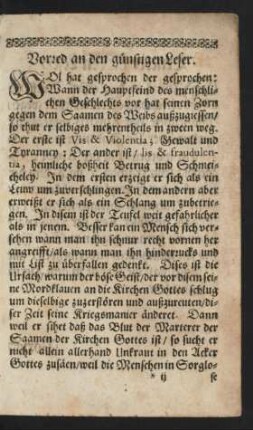 Vorred an den günstigen Leser.
WOl hat gesprochen der gesprochen:
Wann der Hauptfeind des menschli-
chen Geschlechts vor hat seinen Zorn
gegen dem Saamen des Weibs außzugiessen/
so thut er selbiges mehrentheils in zween weg.
Der erste ist Vis & Violentia; Gewalt und
Tyranney: Der ander ist / lis & fraudulen-
tia, heimliche boßheit Betrug und Schmei-
cheley. In dem ersten erzeigt er sich als ein
Leuw um zuverschlingen. In dem andern aber
erweißt er sich als ein Schlang um zubetrie-
gen. In disem ist der Teufel weit gefahrlicher
als in jenem. Besser kan ein Mensch sich ver-
sehen wann man ihn schnur recht vornen her
angreifft / als wann man ihn hinderrucks und
mit List zu überfallen gedenkt. Dises ist die
Ursach / warum der böse Geist / der vor disem sei-
ne Mordklauen an die Kirchen Gottes schlug
um dieselbige zuzerstören und außzureuten / di-
ser Zeit seine Kriegsmanier änderet. Dann
weil er sihet daß das Blut der Marterer der
Saamen der Kirchen Gottes ist / so sucht er
nicht allein allerhand Unkraut in den Acker
Gottes zusäen / weil die Menschen in Sorglo-
ij se